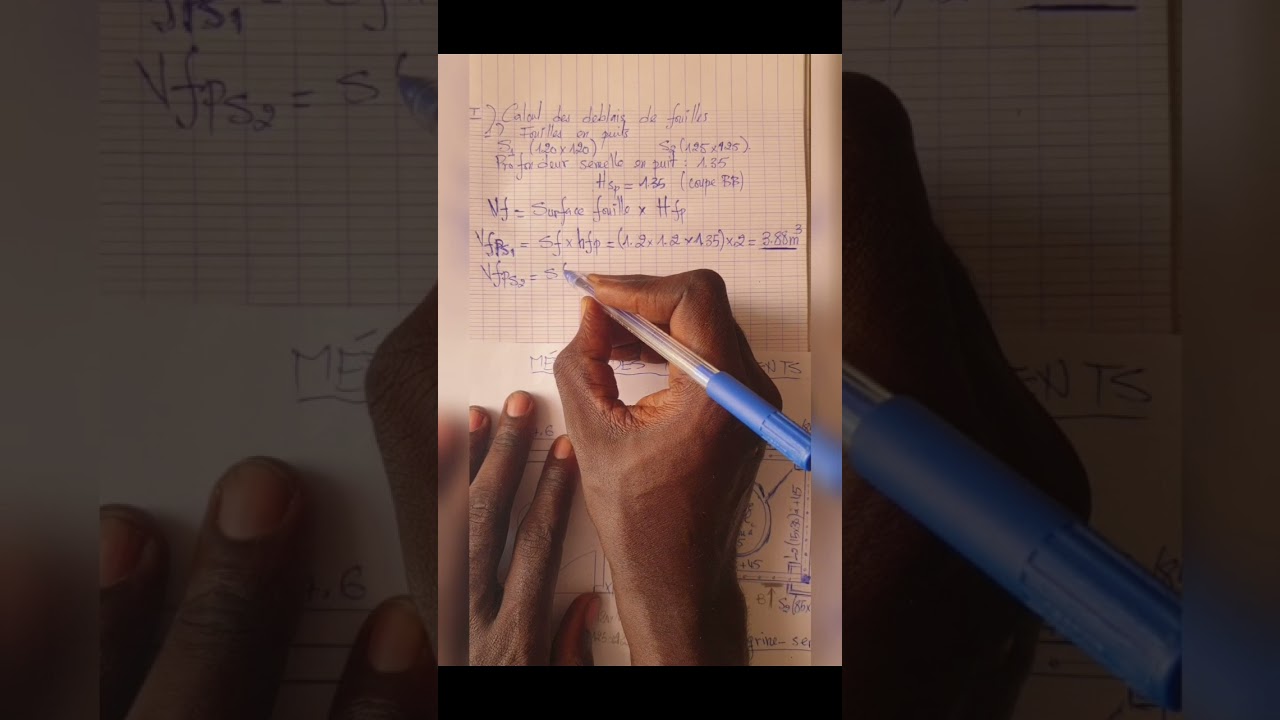 I) Calcul des deblais de fouilles
1) Fouilles en puits
S1 (120x120) S2 (125x125)
Profondeur semelle en puit : 1.35
Hsp = 1.35 (coupe BB)
Vf = Surface fouille x Hfp
VfpS1 = Sf x hfp = (1.2 x 1.2 x 1.35) x 2 = 3.88m³
VfpS2 = Sf
MÉ DES ENTS
.6
+45